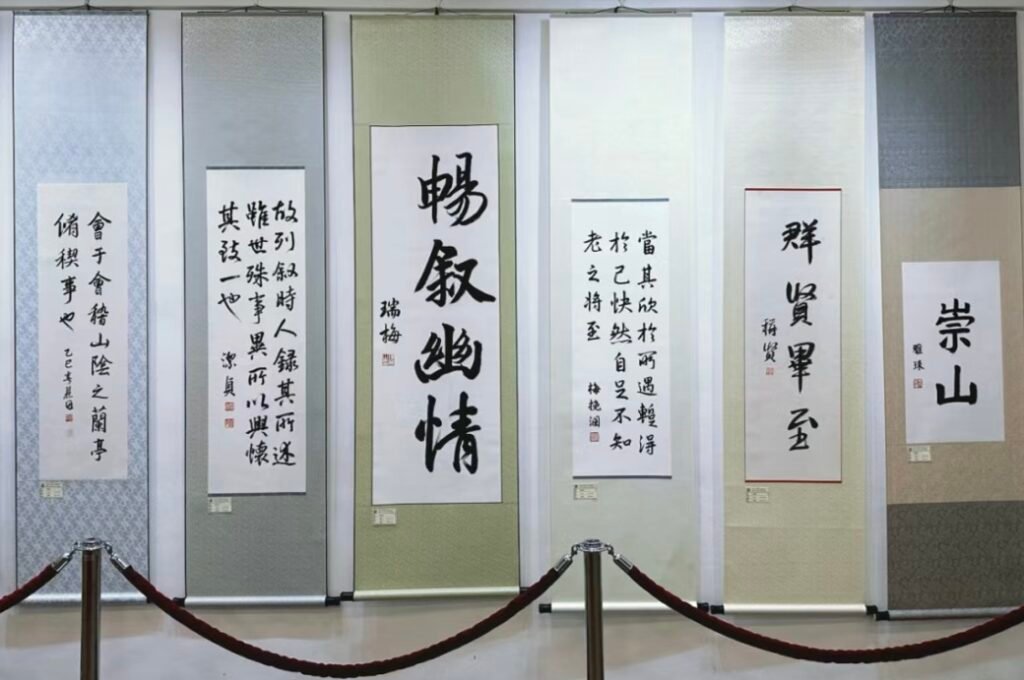 崇山
群賢畢至
稱賢
當其欣於所遇蹔得
於己快然自足不知
老之將至
梅挽瀾
暢叙幽情
瑞梅
故列叙時人録其所述
雖世殊事異所以興懷
其致一也
潔貞
會于會稽山陰之蘭亭
脩稧事也
乙巳